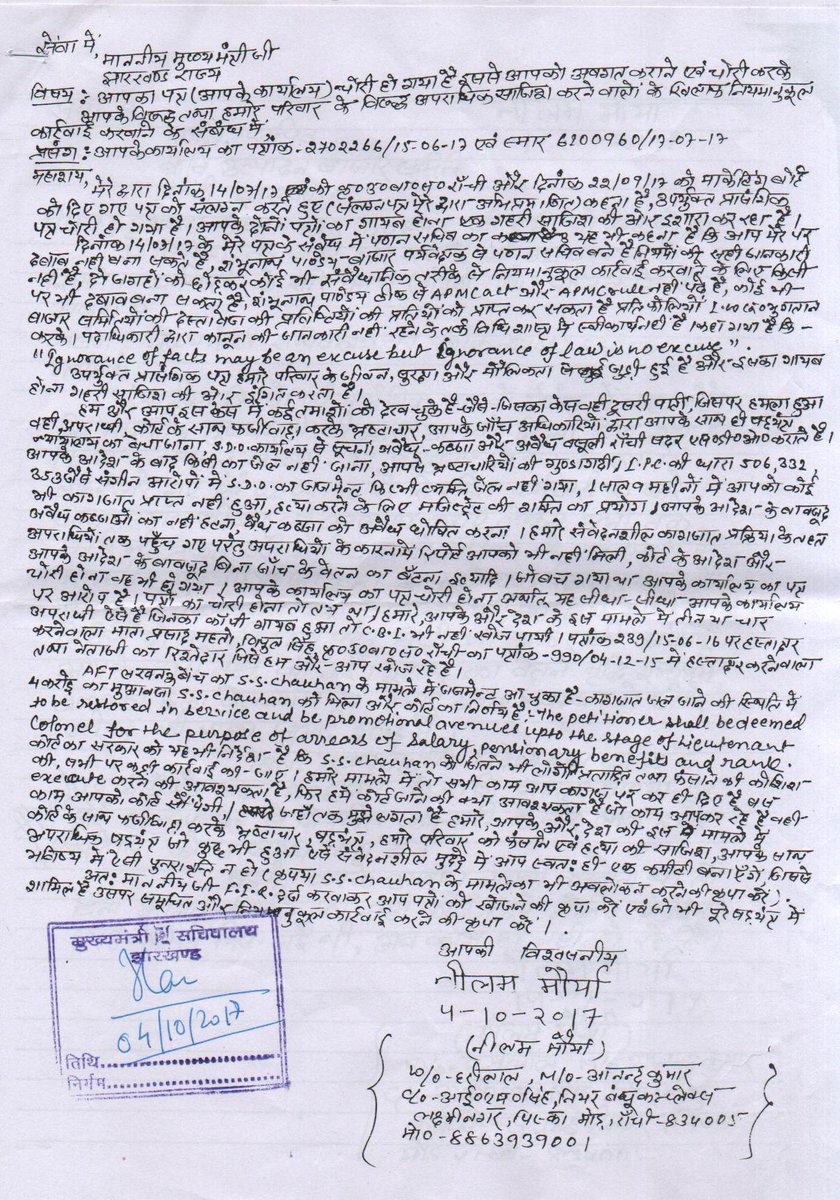 सेवा में,
माननीय मुख्य मंत्री जी
झारखण्ड राज्य
विषय : आपका पत्र (आपके कार्यालय) चोरी हो गया है इससे आपको अवगत कराने एवं चोरी करके
आपके विरूद्ध तथा हमारे परिवार के विरूद्ध अपराधिक साजिश करने वालों के खिलाफ नियमानुकूल
कार्रवाई करवाने के संबंध में,
प्रसंग : आपके कार्यालय का पत्रांक - 2702266/15-06-17 एवं स्मार 6200960/17-07-17
महाशय,
मेरे द्वारा दिनांक 14/07/17 को कृ०उ०बा०स० राँची और दिनांक 22/09/17 को मार्केटिंग बोर्ड
को दिए गए पत्र को संलग्न करते हुए (संलग्न पत्र मेरे द्वारा अभिप्रमाणित) कहना है, उपर्युक्त प्रासंगिक
पत्र चोरी हो गया है। आपके दोनों पत्रों का गायब होना एक गहरी साजिश की ओर इशारा कर रहा है।
दिनांक 14/07/17 के मेरे पत्र के संबंध में पणन सचिव का यह भी कहना है कि आप मेरे पर
दबाव नहीं बना सकते हैं, शंभूनाथ पाण्डेय बाजार पर्यवेक्षक से पणन सचिव बने हैं नियमों की सही जानकारी
नहीं है, दो जगहों को छोड़कर कोई भी संवैधानिक तरीके से नियमानुकूल कार्रवाई करवाने के लिए किसी
पर भी दबाव बना सकता है। शंभूनाथ पाण्डेय ठीक से APMC act और APMC rule नहीं पढ़े हैं, कोई भी
बाजार समितियों की दस्तावेज की प्रतिलिपियों की प्रतियों को प्राप्त कर सकता है प्रति कॉपी भुगतान
करके। पदाधिकारी द्वारा कानून की जानकारी नहीं रहने के तर्क विधि शास्त्र में स्वीकार्य नहीं है। कहा गया है कि -
"Ignorance of facts may be an excuse but ignorance of law is no excuse".
उपर्युक्त प्रासंगिक पत्र हमारे परिवार के जीवन, सुरक्षा और मौलिकता से जुड़ी हुई है और इसका गायब
होना गहरी साजिश की ओर इंगित करता है।
हम और आप इस केस में कई तमाशों को देख चुके हैं जैसे - जिसका केस वही दूसरी पार्टी, जिसपर हमला हुआ
वही अपराधी, कोर्ट के साथ फर्जीवाड़ा करके भ्रष्टाचार, आपके जाँच अधिकारियों द्वारा आपके साथ ही षड्यंत्र
न्यायालय का बेचा जाना, S.D.O. कार्यालय से सूचना अवैध-कब्जा और अवैध वसूली राँची सदर एस०डी०ओ० कराते हैं।
आपके आदेश के बाद किसी का जेल नहीं जाना, आपसे भ्रष्टाचारियों की गुण्डागर्दी, I.P.C. की धारा 506, 332,
353 जैसे संगीन आरोपों में S.D.O. का जजमेन्ट फिर भी व्यक्ति जेल नहीं गया, 1 साल 4 महीनों में आपको कोई
भी कागजात प्राप्त नहीं हुआ, हत्या करने के लिए मजिस्ट्रेट की शक्ति का प्रयोग। आपके आदेश के बावजूद
अवैध कब्जाओं का नहीं हटना, वैध कब्जा को अवैध घोषित करना। हमारे संवेदनशील कागजात प्रक्रिया के तहत
अपराधियों तक पहुँच गए परंतु अपराधियों के कारनामे रिपोर्ट आपको भी नहीं मिली, कोर्ट के आदेश और
आपके आदेश के बावजूद बिना जाँच के वेतन का बँटना इत्यादि। जो बच गया था आपके कार्यालय का पत्र
चोरी होना वह भी हो गया। आपके कार्यालय का पत्र चोरी होना अर्थात् यह सीधा-सीधा आपके कार्यालय
पर आरोप है। पत्रों का चोरी होना तो तय था। हमारे, आपके और देश के इस मामले में तीन या चार
अपराधी ऐसे हैं जिनका कॉपी गायब हुआ तो C.B.I. भी नहीं खोज पायी। पत्रांक 239/15-06-16 पर हस्ताक्षर
करनेवाला माता प्रसाद महतो, विपुल सिंह, कृ०उ०बा०स० राँची का पत्रांक - 990/04-12-15 में हस्ताक्षर करनेवाला
तथा नेताजी का रिश्तेदार जिसे हम और आप खोज रहे हैं।
AFT लखनऊ बेंच का S.S. chauhan के मामले में जजमेन्ट आ चुका है - कागजात जल जाने की स्थिति में
4 करोड़ का मुआवजा S.S. chauhan को मिला और कोर्ट का निर्णय है: The petitioner shall be deemed
to be restored in service and be promotional avenues upto the stage of Lieutenant
Colonel for the purpose of arrears of salary, pensionary benefits and rank.
कोर्ट का सरकार को यह भी निर्देश है कि S.S. chauhan को जितने भी लोगों ने प्रताड़ित तथा फँसाने की कोशिश
की, सभी पर कड़ी कार्रवाई की जाए। हमारे मामले में तो सभी काम आप कागज पर कर ही दिए हैं बस
execute करने की आवश्यकता है, फिर हमें कोर्ट जाने की क्या आवश्यकता है जो काम आप कर रहे हैं वही
काम आपको कोर्ट सौंपेगी। जहाँ तक मुझे लगता है हमारे, आपके और, देश की इस मामले में
कोर्ट के साथ फर्जीवाड़ा करके भ्रष्टाचार, षड्यंत्र, हमारे परिवार को फँसाने एवं हत्या की साजिश, आपके साथ
अपराधिक षड्यंत्र जो कुछ भी हुआ ऐसे संवेदनशील मुद्दे में आप स्वतः ही एक कमिटी बनाएँगे जिससे
भविष्य में ऐसी पुनरावृत्ति न हो (कृपया S.S. chauhan के मामले का भी अवलोकन करने की कृपा करें)।
अतः माननीय जी F.I.R. दर्ज करवाकर आप पत्रों को खोजने की कृपा करें एवं जो भी पूरे षड्यंत्र में
शामिल है उसपर समुचित और नियमानुकूल कार्रवाई करने की कृपा करें।
आपकी विश्वसनीय
नीलम मौर्या
4-10-2017
(नीलम मौर्या)
W/O - हीरालाल, M/O - आनन्द कुमार
C/O - आई०एस०सिंह, नियर बंधु कम्प्लेक्स
लक्ष्मीनगर, पिस्का मोड़, राँची - 834005
मो० - 8863939001
मुख्यमंत्री सचिवालय
झारखण्ड
04/10/2017
तिथि
निर्गम